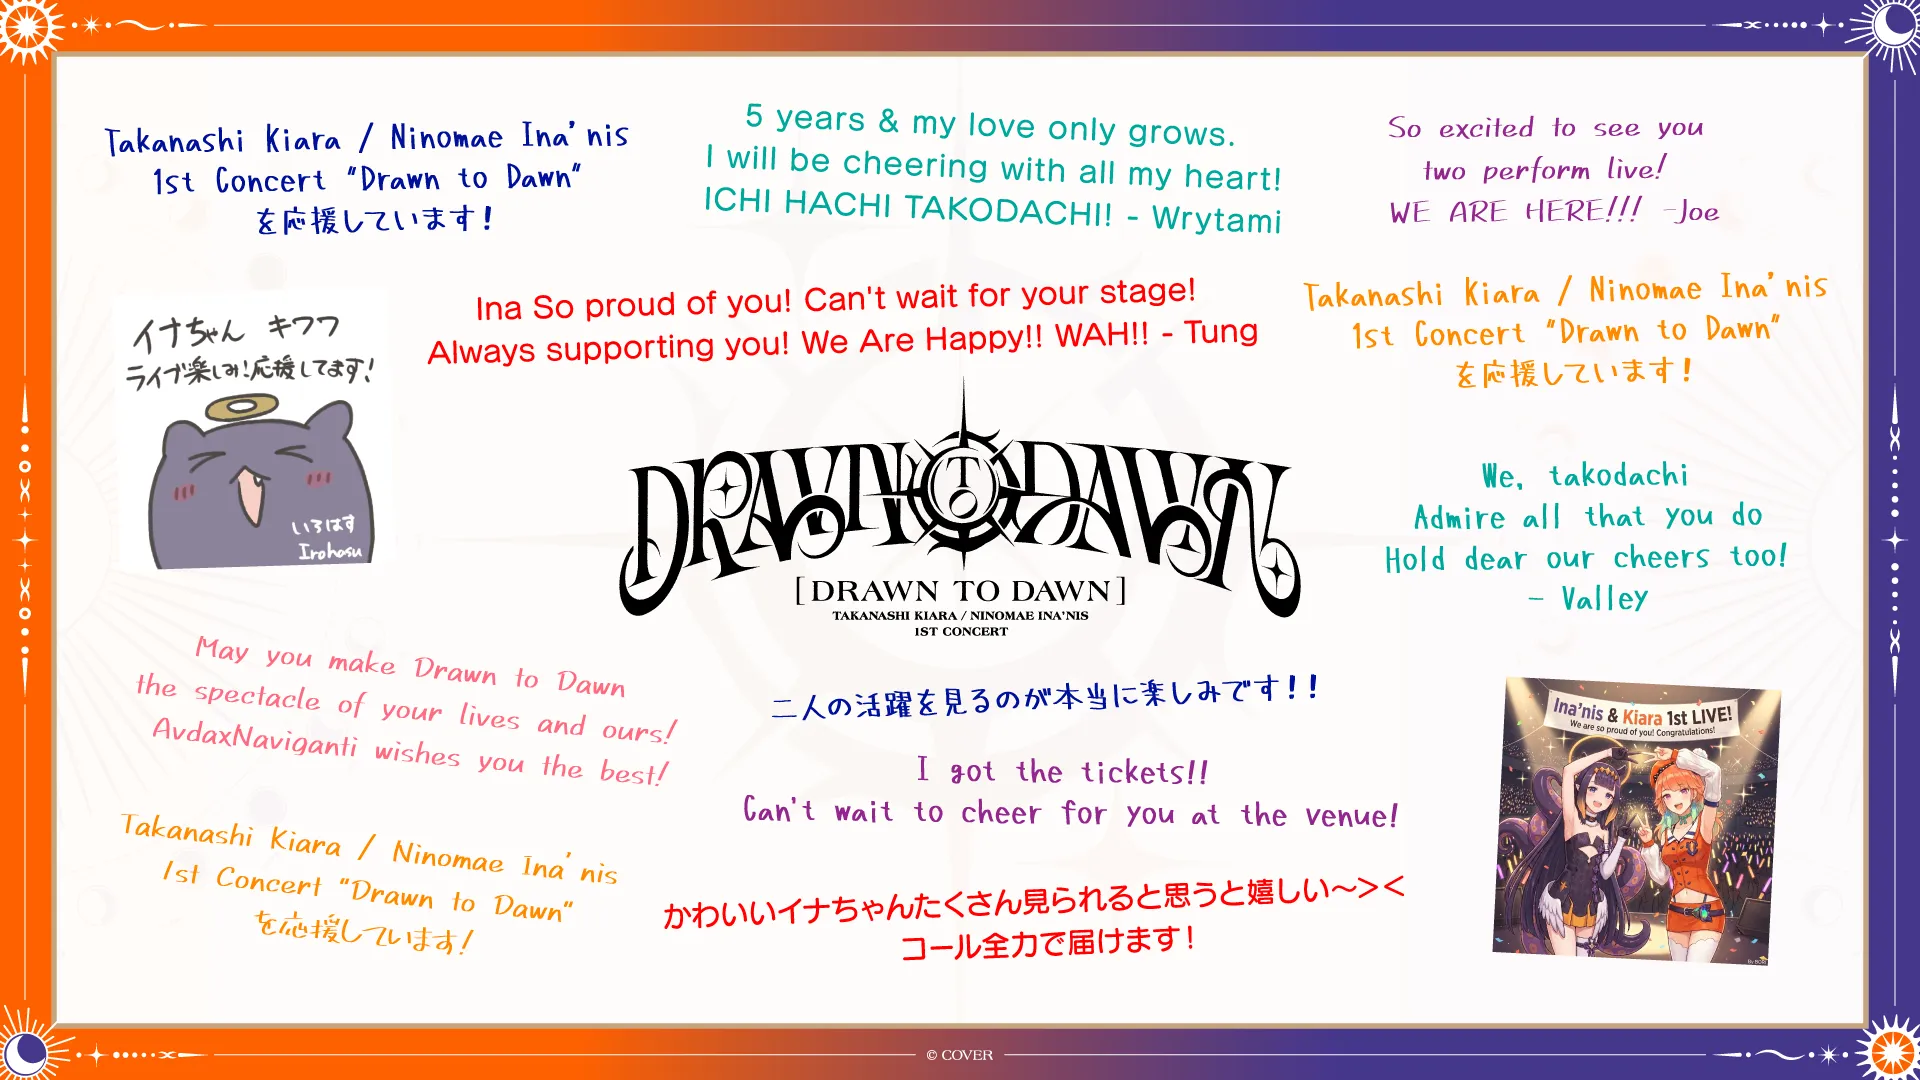 Takanashi Kiara / Ninomae Ina'nis
1st Concert "Drawn to Dawn"
を応援しています!
5 years & my love only grows.
I will be cheering with all my heart!
ICHI HACHI TAKODACHI! - Wrytami
So excited to see you
two perform live!
WE ARE HERE!!! -Joe
イナちゃん キワワ
ライブ楽しみ!応援してます!
いろはす
Irohasu
Ina So proud of you! Can't wait for your stage!
Always supporting you! We Are Happy!! WAH!! - Tung
Takanashi Kiara / Ninomae Ina'nis
1st Concert "Drawn to Dawn"
を応援しています!
DRAWN TO DAWN
[DRAWN TO DAWN]
TAKANASHI KIARA / NINOMAE INA'NIS
1ST CONCERT
We, takodachi
Admire all that you do
Hold dear our cheers too!
- Valley
May you make Drawn to Dawn
the spectacle of your lives and ours!
AvdaxNaviganti wishes you the best!
二人の活躍を見るのが本当に楽しみです!!
I got the tickets!!
Can't wait to cheer for you at the venue!
Ina'nis & Kiara 1st LIVE!
We are so proud of you! Congratulations!
Takanashi Kiara / Ninomae Ina'nis
1st Concert "Drawn to Dawn"
を応援しています!
かわいいイナちゃんたくさん見られると思うと嬉しい～><
コール全力で届けます!
© COVER